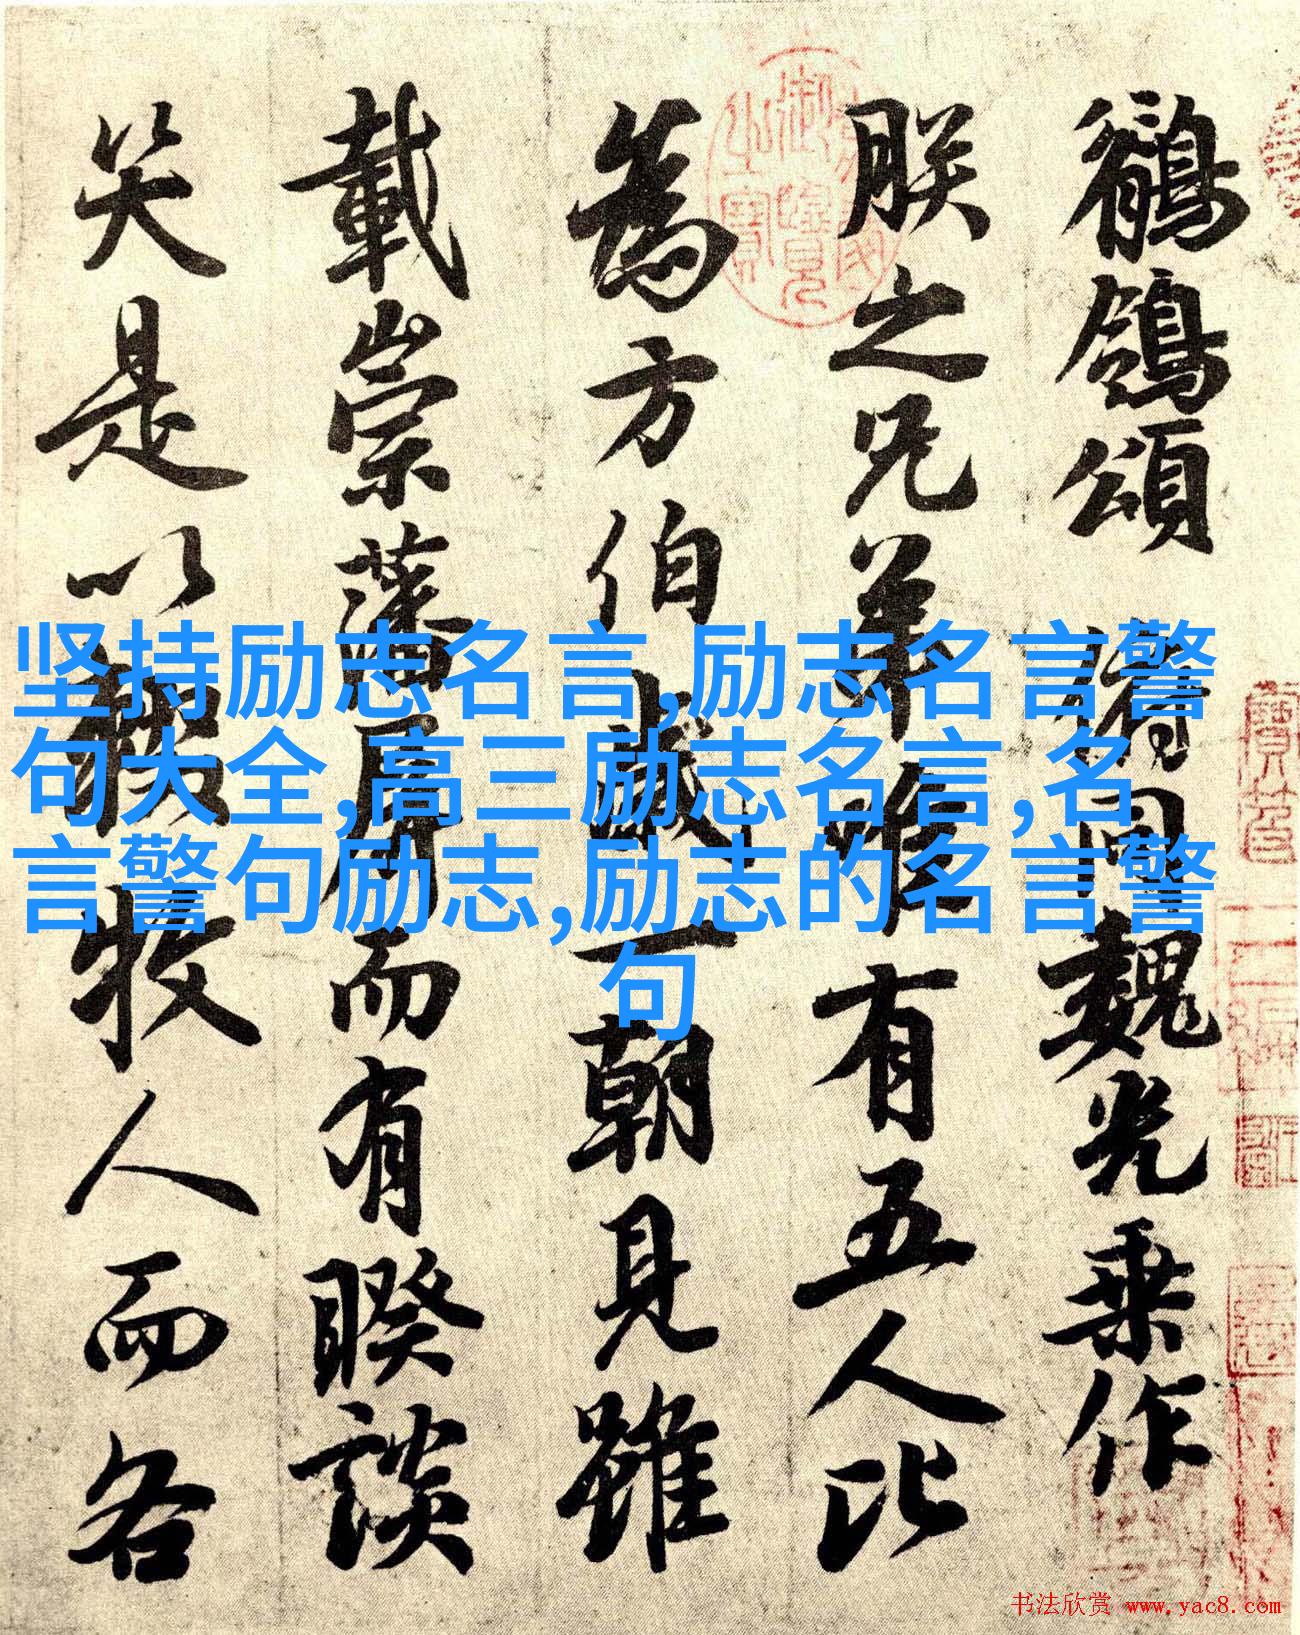 鶺鴒頌 俯同魏光乘作
朕之兄弟唯有五人比
為方伯歲一朝見雖
載崇藩屏而有睽談
笑是以輟牧人而各
坚持励志名言,励志名言警
句大全,高三励志名言,名
言警句励志,励志的名言警
句
书法欣赏 www.yac8.com